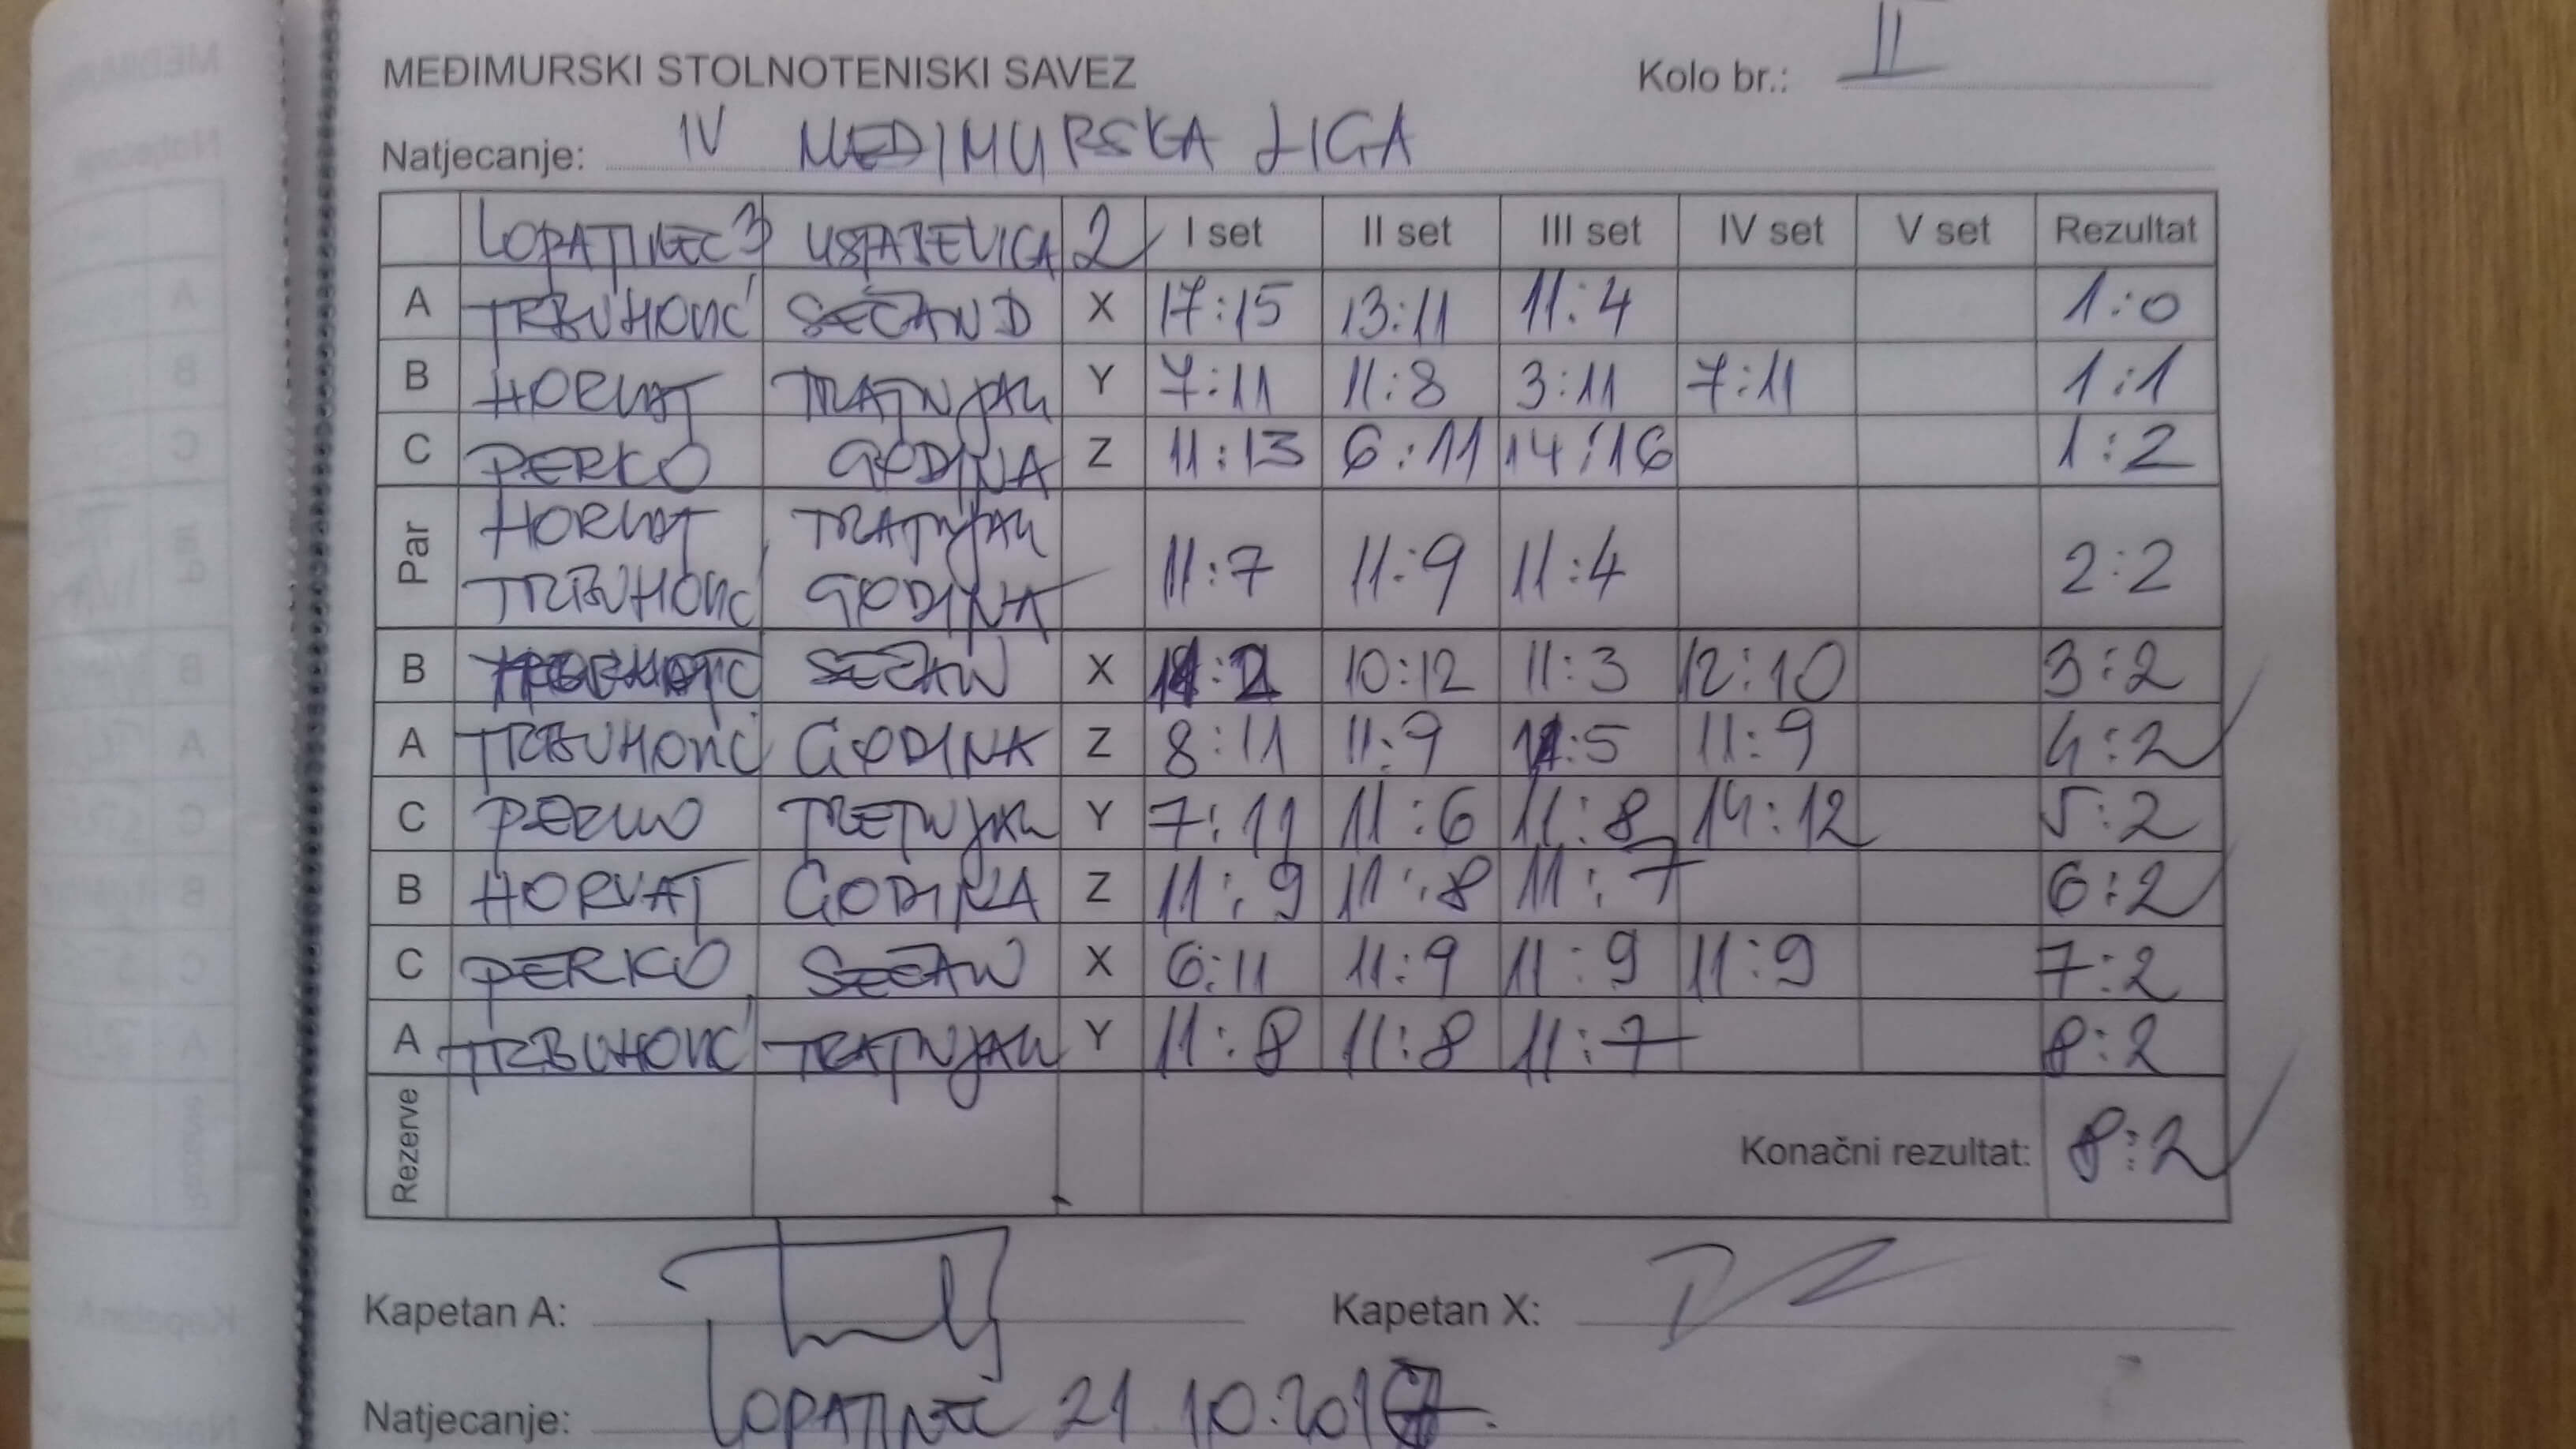 MEĐIMURSKI STOLNOTENISKI SAVEZ Kolo br.: II
Natjecanje: IV MEĐIMURSKA LIGA
LOPATINEC 3 2 I set II set III set IV set V set Rezultat
A TRBUHOVIĆ SEČAN D X 17:15 13:11 11:4 1:0
B HORVAT TRATNJAK Y 7:11 11:8 3:11 7:11 1:1
C PERKO GODINA Z 11:13 6:11 14:16 1:2
HORVAT TRATNJAK
Par 11:7 11:9 11:4 2:2
TRBUHOVIĆ GODINA
B SEČAN X 10:12 11:3 12:10 3:2
A TRBUHOVIĆ GODINA Z 8:11 11:9 11:5 11:9 4:2
C PERKO TRETNJAK Y 7:11 11:6 11:8 14:12 5:2
B HORVAT GODINA Z 11:9 11:8 11:7 6:2
C PERKO SEČAN X 6:11 11:9 11:9 11:9 7:2
A TRBUHOVIĆ TRATNJAK Y 11:8 11:8 11:7 8:2
Rezerve Konačni rezultat: 8:2
Kapetan A: Kapetan X:
Natjecanje: LOPATINEC 21 10.2017.